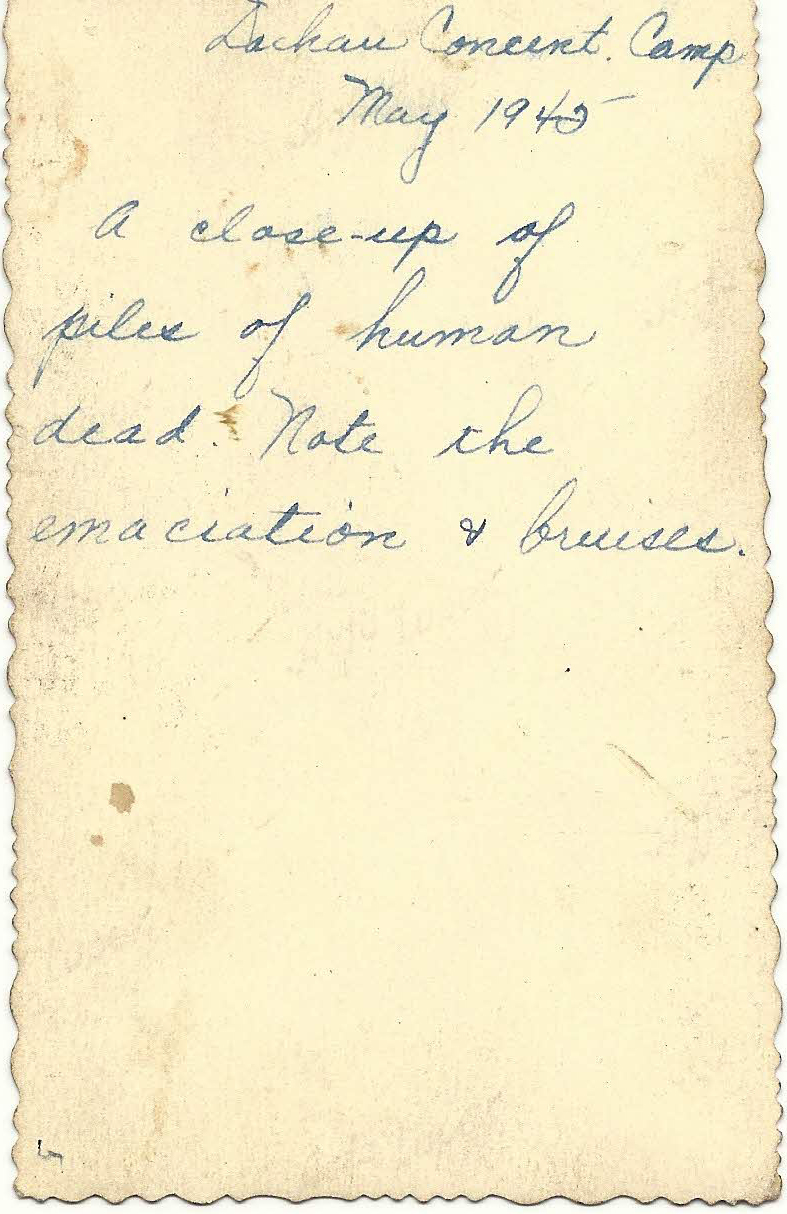 Dachau Concent. Camp
May 1945
A close-up of
piles of human
dead. Note the
emaciation & bruises.